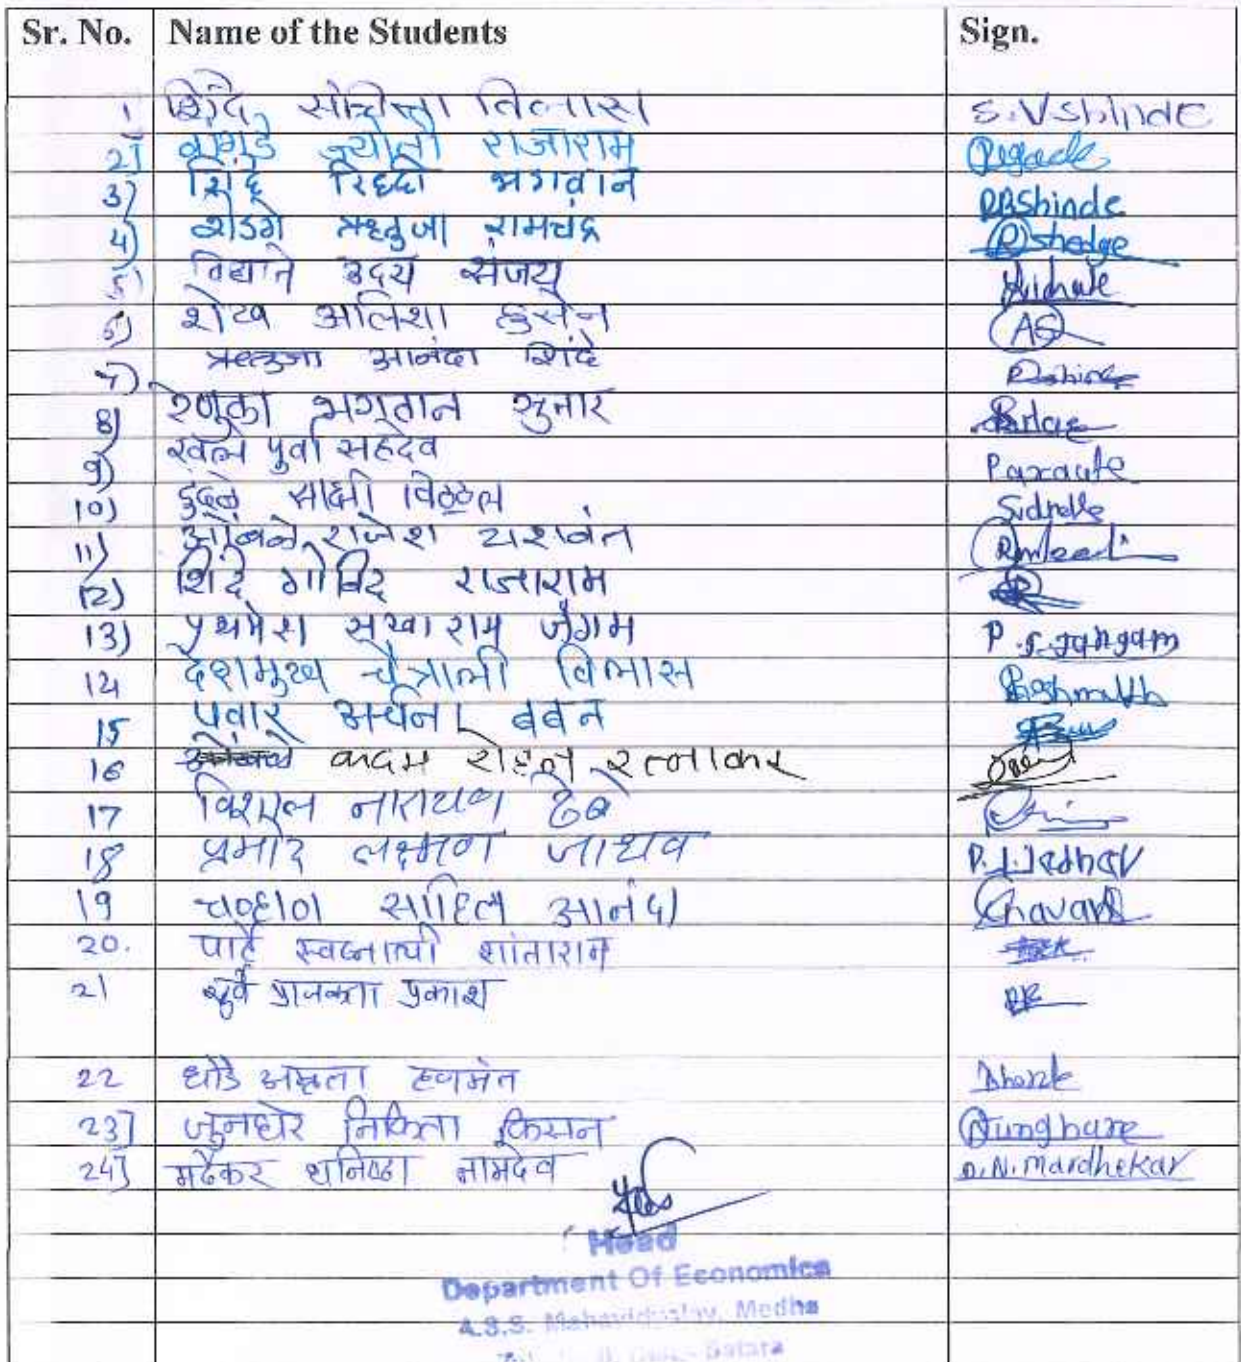 Sr. No. Name of the Students Sign.
1 शिंदे विलास S.V.Shinde
2) ज्योती राजाराम
3) शिंदे रिध्दी भगवान R.B.Shinde
4) शेडगे ऋतुजा रामचंद्र Rshedge
5) उदय संजय
6) शेख अलिशा हुसेन AS
7) ऋतुजा आनंदा शिंदे Rshinde
8) रेणुका भगवान सुतार
9) पुर्वा सहदेव
10) साक्षी विठ्ठल
11) ओंबळे राजेश यशवंत
12) शिंदे गोविंद राजाराम
13) प्रथमेश सखाराम जंगम P.S.Jangam
14 देशमुख चैत्राली विलास Deshmukh
15 पवार अर्चना बबन
16 कदम रोहन रत्नाकर
17 विशाल नारायण ढेबे
18 प्रमोद लक्ष्मण जाधव P.L.Jadhav
19 चव्हाण साहिल आनंदा Chavan
20. पार्टे स्वप्नाली शांताराम
21 सुर्वे प्राजक्ता प्रकाश
22 धोंडे अमृता हणमंत
23) जुनघरे निकिता किसन Junghare
24) मर्ढेकर धनिष्ठा नामदेव D.N.Mardhekar
Head
Department Of Economics
A.S.S. Mahavidyalay, Medha
Satara